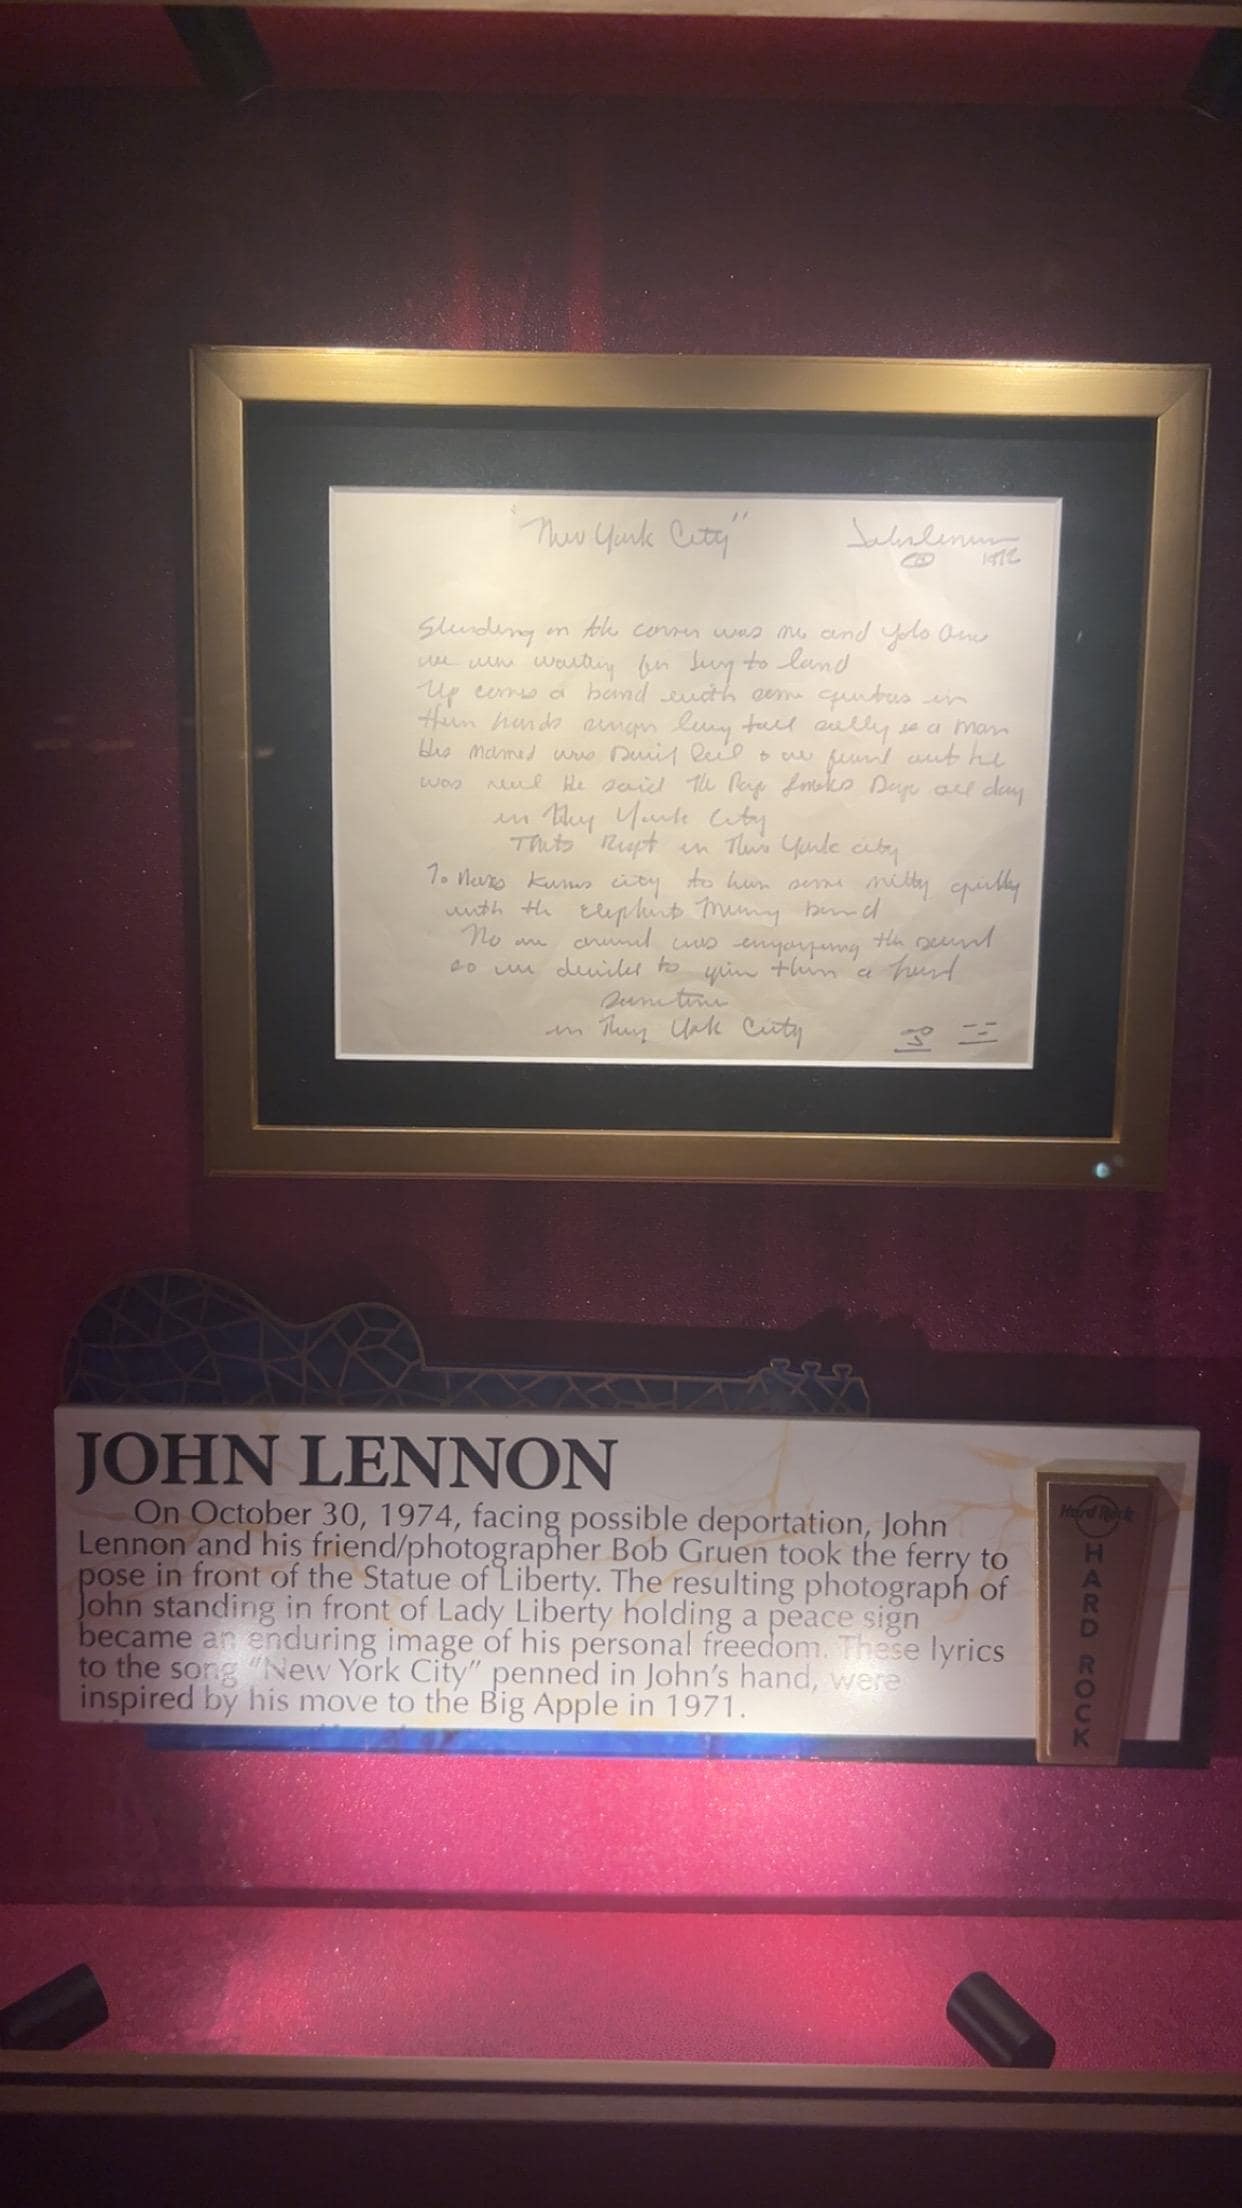 "New York City"
John Lennon
1972
Standing on the corner was me and Yoko Ono
we were waiting for Jerry to land
Up comes a band with some guitars in
their hands singin long tall sally is a man
His named was David Peel & we found out he
was real He said the Pope smokes Dope all day
in New York City
Thats Right in New York city
To Maxs Kansas city to hear some nitty gritty
with the Elephants Memory band
No one around was enjoying the sound
so we decided to give them a hand
in New York City
JOHN LENNON
On October 30, 1974, facing possible deportation, John
Lennon and his friend/photographer Bob Gruen took the ferry to
pose in front of the Statue of Liberty. The resulting photograph of
John standing in front of Lady Liberty holding a peace sign
became an enduring image of his personal freedom. These lyrics
to the song "New York City" penned in John's hand, were
inspired by his move to the Big Apple in 1971.
Hard Rock
HARD ROCK